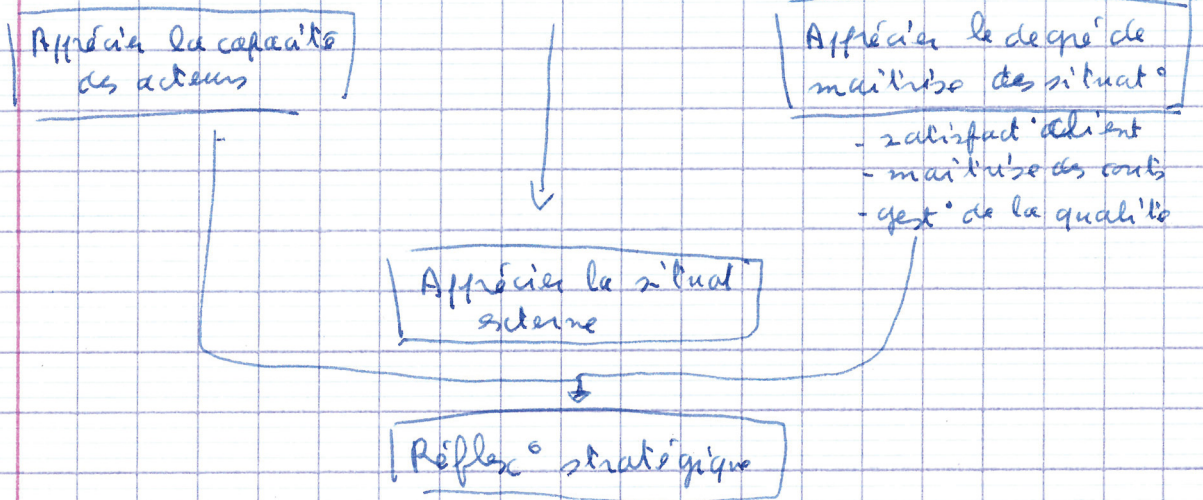 Apprécier la capacité
des acteurs
Apprécier le degré de
maîtrise des situat°
- satisfact° client
- maîtrise des couts
- gest° de la qualité
Apprécier la situat
externe
Réflex° stratégique